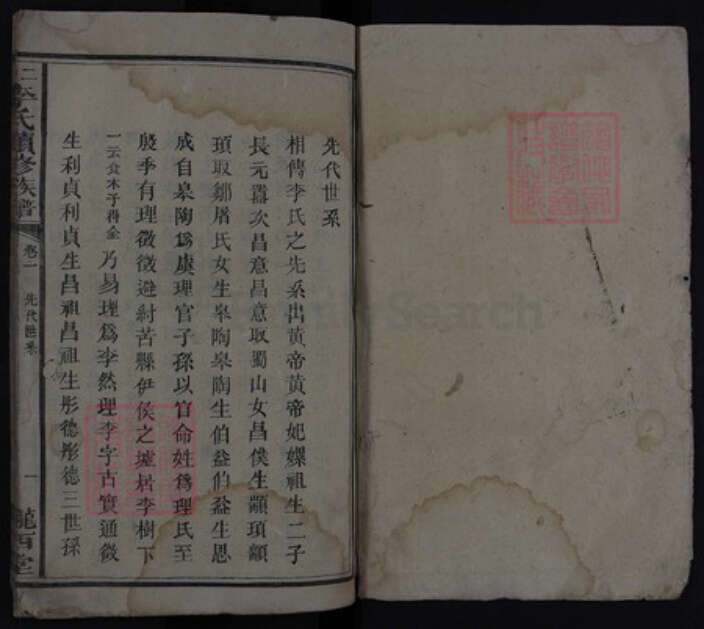 先代世系
相傳李氏之先系出黃帝黃帝妃嫘祖生二子
長元囂次昌意昌意取蜀山女昌僕生顓頊顓
頊取鄒屠氏女生皋陶皋陶生伯益伯益生恩
成自皋陶爲虞理官子孫以官命姓爲理氏至
殷季有理徵徵避紂苦縣伊侯之墟居李樹下
一云食木子得全乃易理爲李然理李字古實通徵
生利貞利貞生昌祖昌祖生彤德彤德三世孫
二李氏續修族譜 卷一 先代世系 一 隴西堂
Search